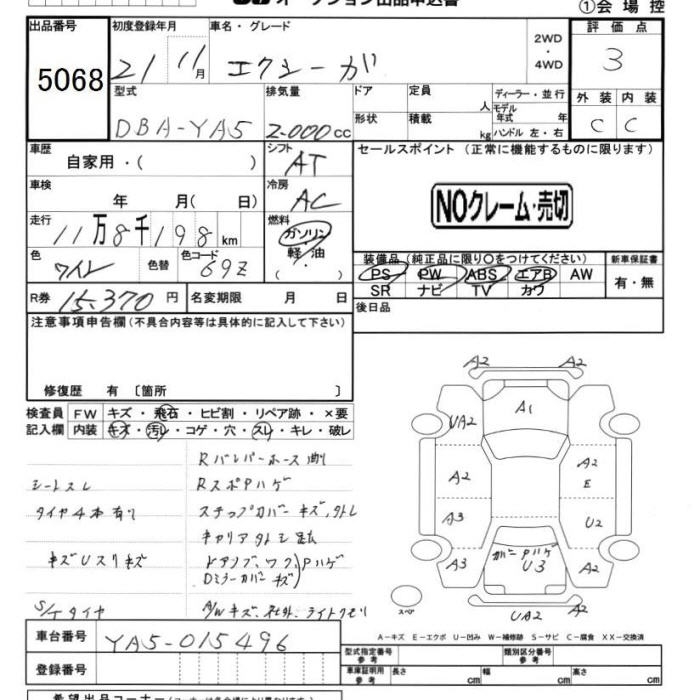 オークション出品申込書
①会場控
出品番号 5068
初度登録年月 21 11月
車名・グレード エクシーガ
2WD
・
4WD
評価点 3
型式 DBA-YA5
排気量 2.000cc
ドア
形状
定員 人
積載 kg
ディーラー・並行
モデル年式 年
ハンドル 左・右
外装 内装
C C
車歴 自家用・( )
シフト AT
セールスポイント (正常に機能するものに限ります)
車検 年 月(日)
冷房 AC
NOクレーム・売切
走行 11万8千198km
燃料 ガソリン
軽・油
色 ワイン 色替
色コード 69Z
装備品 (純正品に限り○をつけてください)
新車保証書
PS PW ABS エアB AW
有・無
SR ナビ TV カワ
R券 15,370円
名変期限 月 日
後日品
注意事項申告欄(不具合内容等は具体的に記入して下さい)
修復歴 有 〔箇所 〕
検査員 FW キズ・飛石・ヒビ割・リペア跡・×要
記入欄 内装 キズ・汚レ・コゲ・穴・スレ・キレ・破レ
シートスレ RスポPハゲ
タイヤ4本有り ステップカバーキズ,タトレ
キズUスリキズ
S/Tタイヤ A/Wキズ、社外、ライトクモリ
A2 A2
UA2 A1
A2 A2
E
A3 U2
カバーPハゲ
A3 U3 A2
スペア UA2 A2
A-キズ E-エクボ U-凹み W-補修跡 S-サビ C-腐食 XX-交換済
車台番号 YA5-015496
登録番号
型式指定番号 参考
類別区分番号 参考
車庫証明用 参考 長さ cm 幅 cm 高さ cm
希望出品コーナー